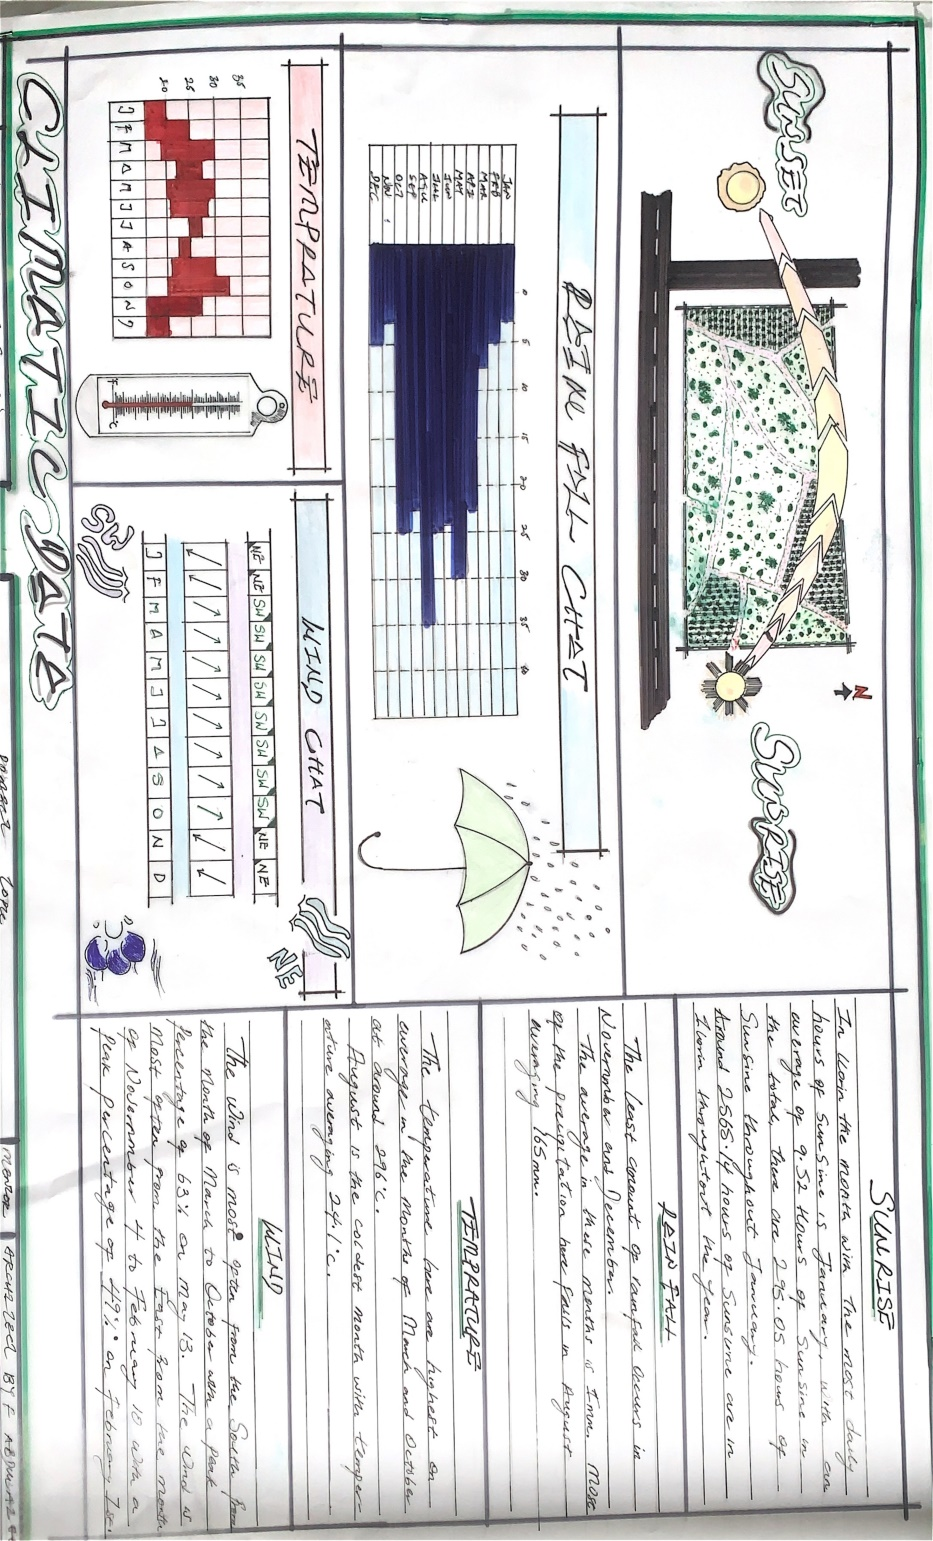 SUNSET
SUNRISE
N
RAIN FALL CHAT
JAN
FEB
MAR
API
MAY
JUN
JUL
AGU
SEP
OCT
NOV
DEC
0 5 10 15 20 25 30 35 40
TEMPRATURE
35
30
25
20
J F M A M J J A S O N D
F °C
WIND CHAT
NE NE SW SW SW SW SW SW SW SW NE NE
J F M A M J J A S O N D
SW
NE
CLIMATIC DATA
SUNRISE
In Ilorin the month with the most daily
hours of Sunsine is January, with an
average of 9.52 Hours of Sunsine in
the total, there are 295.05 hours of
Sunsine throughout January.
Around 2565.14 hours of Sunsine are in
Ilorin throughtout the year.
RAIN FALL
The least amount of rainfall Occurs in
November and December.
The average in these months is 1mm. Most
of the precipitation here falls in August
averaging 165mm.
TEMPRATURE
The temperature here are highest on
average in the Months of March and October
at around 29.6°c.
August is the coldest month with temper-
ature averaging 24.1°c.
WIND
The wind is most often from the South from
the month of March to October with a peak
Percentage of 63% on May 13. The wind is
Most often from the East from the month
of November 4 to February 10 with a
Peak percentage of 49% on February 1st.
TOPIC
MENTOR
ARC